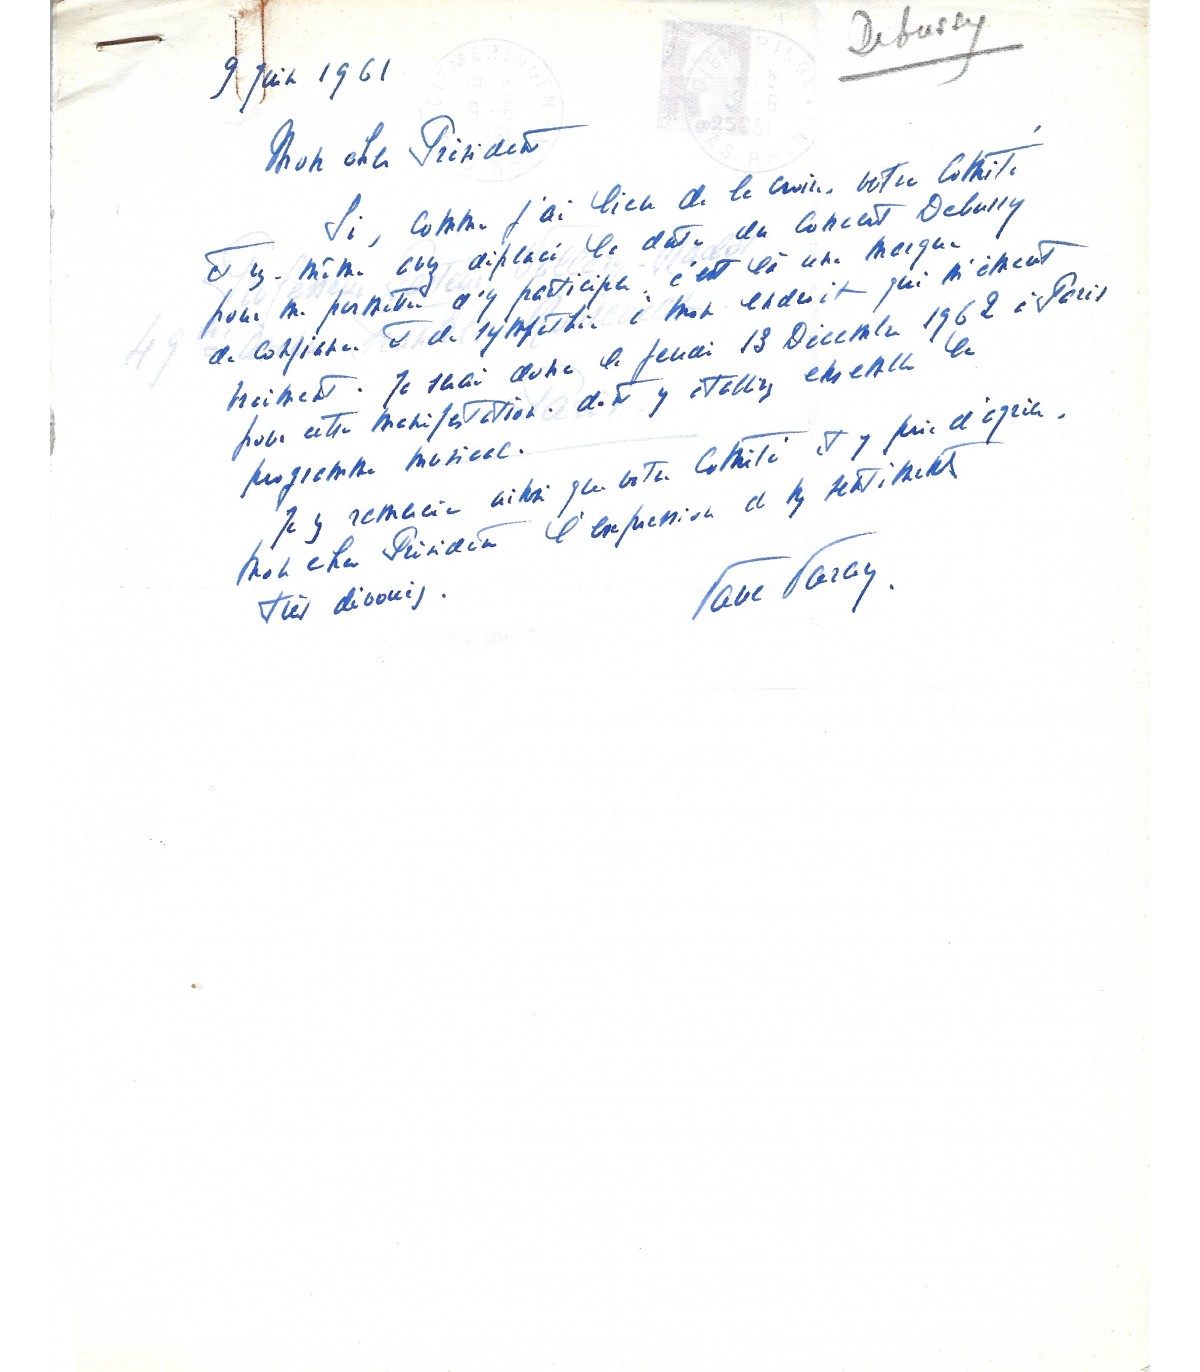 Debussy
9 Juin 1961
Mon cher Président
Si, comme j'ai lieu de le croire, votre Comité
et vs-même avez déplacé la date du concert Debussy
pour me permettre d'y participer, c'est là une marque
de confiance et de sympathie à mon endroit qui m'émeut
vraiment. Je serai donc le jeudi 13 Décembre 1962 à Paris
pour cette manifestation. dont ns établirons ensemble le
programme musical.
Je vs remercie ainsi que votre Comité et vs prie d'agréer,
mon cher Président l'expression de mes sentiments
très dévoués.
Paul Paray.
DIEMERINGEN
BAS RHIN